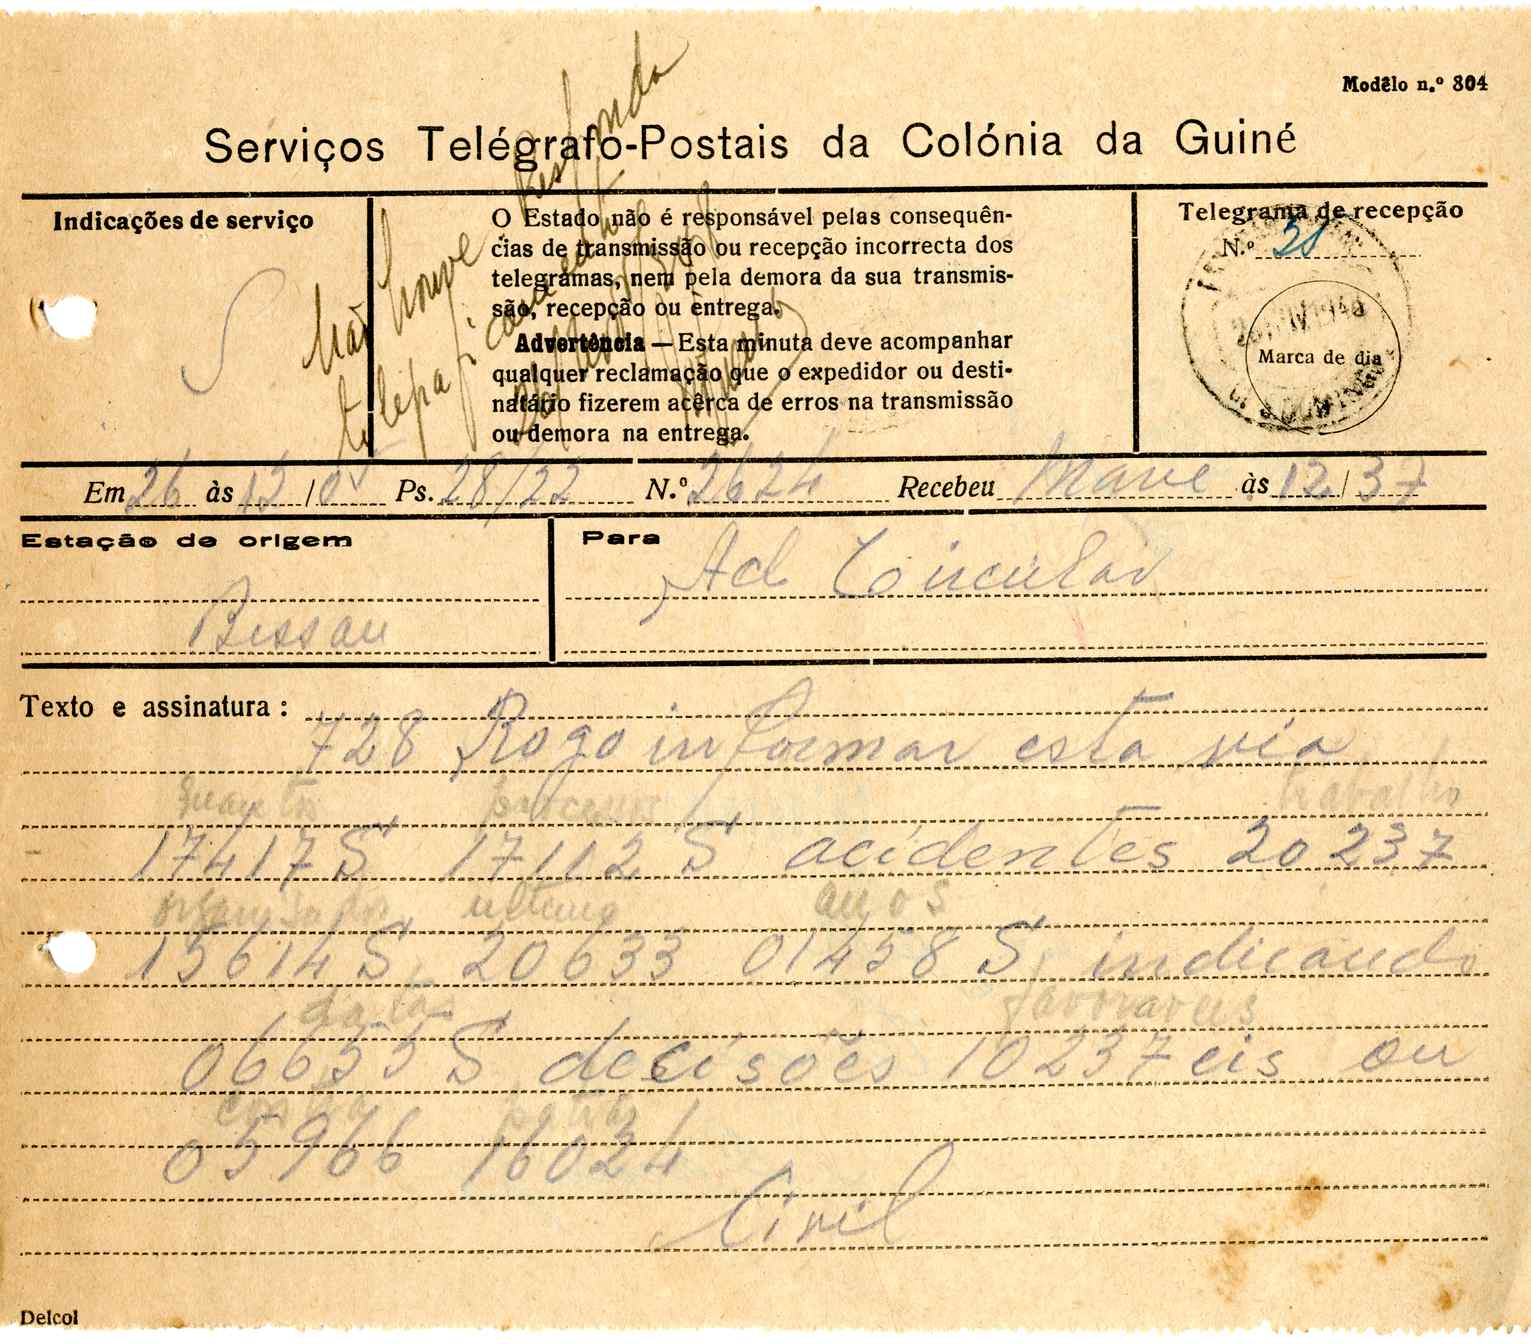 Modêlo n.º 304
Serviços Telégrafo-Postais da Colónia da Guiné
Indicações de serviço
O Estado não é responsável pelas consequên-
cias de transmissão ou recepção incorrecta dos
telegramas, nem pela demora da sua transmis-
são, recepção ou entrega.
Advertência — Esta minuta deve acompanhar
qualquer reclamação que o expedidor ou desti-
natário fizerem acêrca de erros na transmissão
ou demora na entrega.
Telegrama de recepção
N.º 38
Marca de dia
Não houve Responda
Em 26 às 12/05 Ps. 28/22 N.º 2624 Recebeu às 12/37
Estação de origem
Bissau
Para
Ad Circular
Texto e assinatura:
728 Rogo informar esta via
quantos processos trabalho
17417 S 17112 S acidentes 20237
organisados ultimos anos
15614 S 20633 01458 S indicando
datas favoraveis
06655 S decisões 10237 eis ou
contra patrão
05966 16024
Civil
Delcol